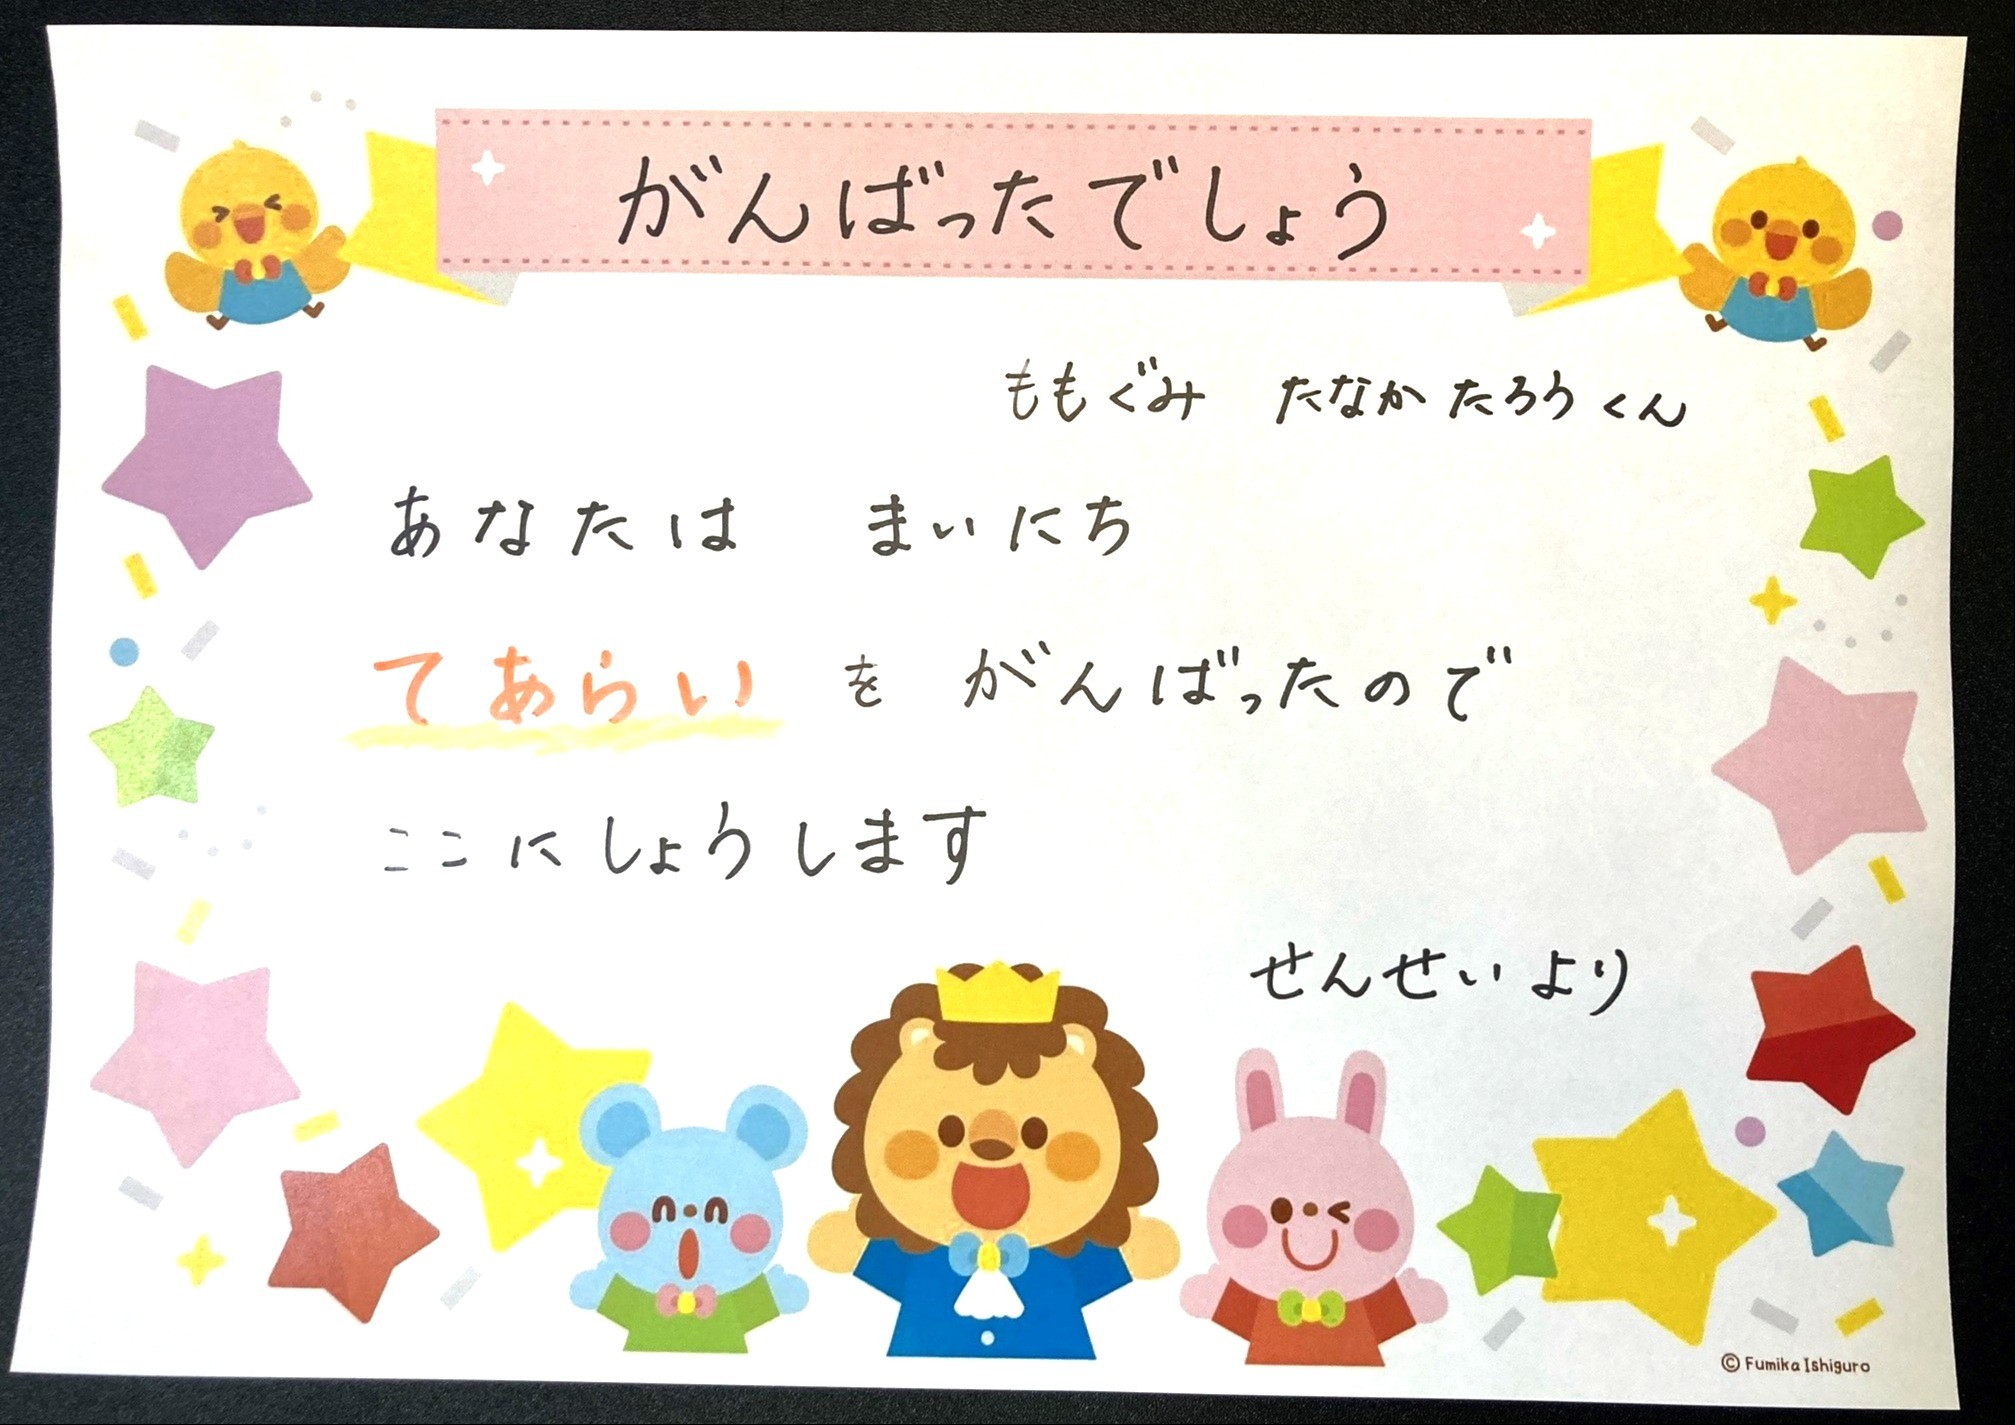 がんばったでしょう
ももぐみ たなか たろうくん
あなたは まいにち
てあらい を がんばったので
ここにしょうします
せんせいより
© Fumika Ishiguro